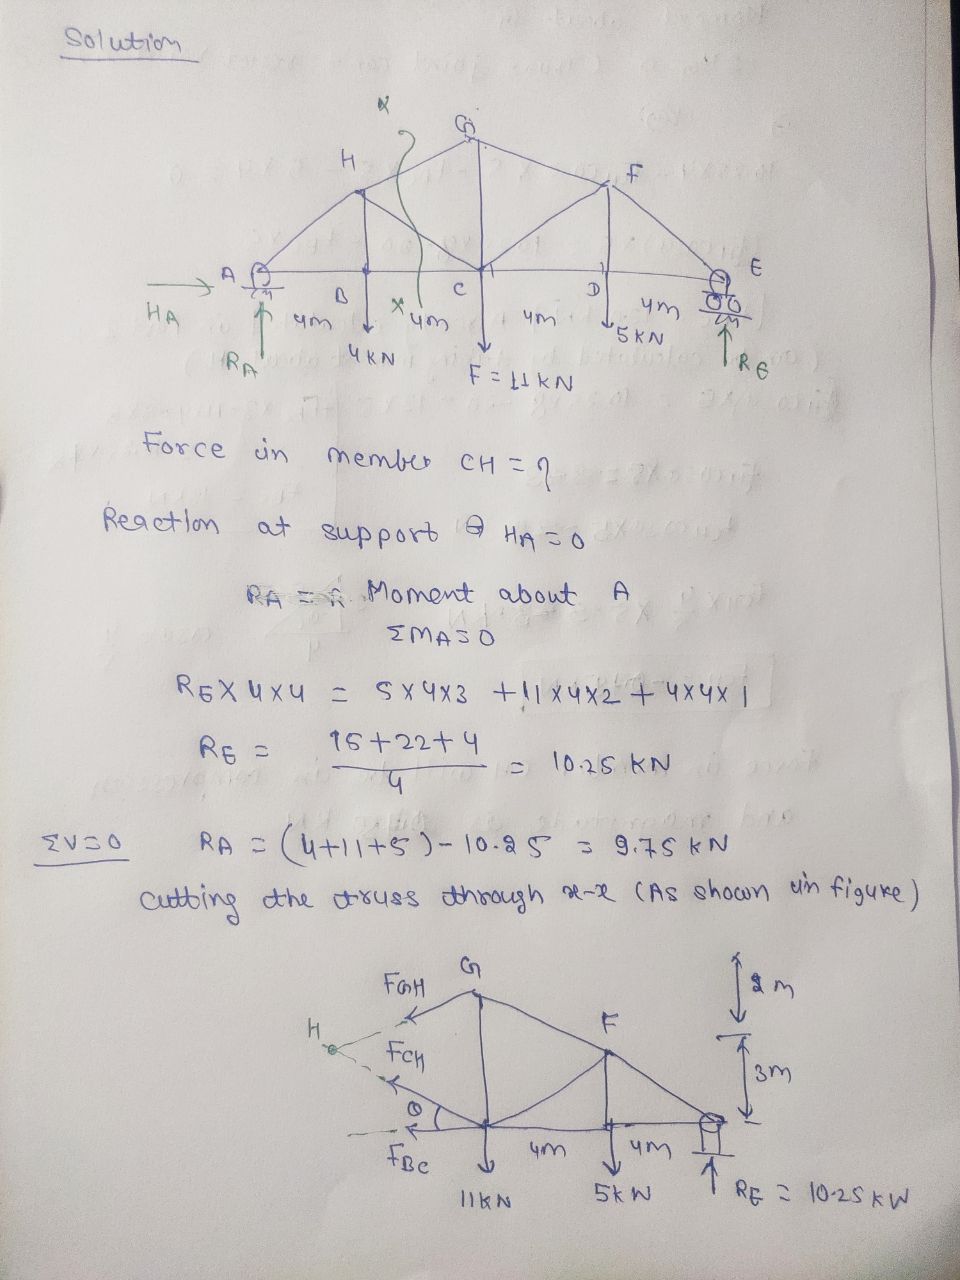 Solution
x
G
H
F
A
E
B
C
D
HA
x
4m
4m
4m
4m
RA
4KN
F = 11 KN
5KN
RE
Force in member CH = ?
Reaction at support HA = 0
RA = Moment about A
ΣMA = 0
RE X 4 X 4 = 5 X 4 X 3 + 11 X 4 X 2 + 4 X 4 X 1
RE = 15 + 22 + 4
4
= 10.25 KN
ΣV = 0 RA = (4+11+5) - 10.25 = 9.75 KN
cutting the truss through x-x (As shown in figure)
G
FGH
2m
H
F
FCH
3m
θ
FBC
4m
4m
11KN
5KN
RE = 10.25 KN